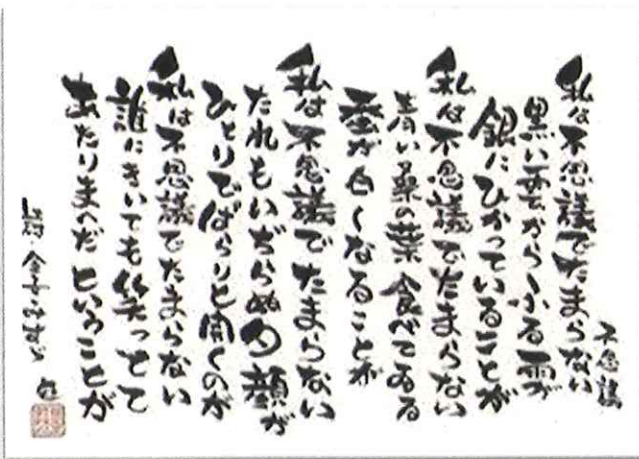 不思議
私は不思議でたまらない
黒い雲からふる雨が
銀にひかっていることが
私は不思議でたまらない
青い桑の葉食べてゐる
蚕が白くなることが
私は不思議でたまらない
たれもいぢらぬ夕顔が
ひとりでぱらりと開くのが
私は不思議でたまらない
誰にきいても笑ってて
あたりまへだということが
詩・金子みすゞ